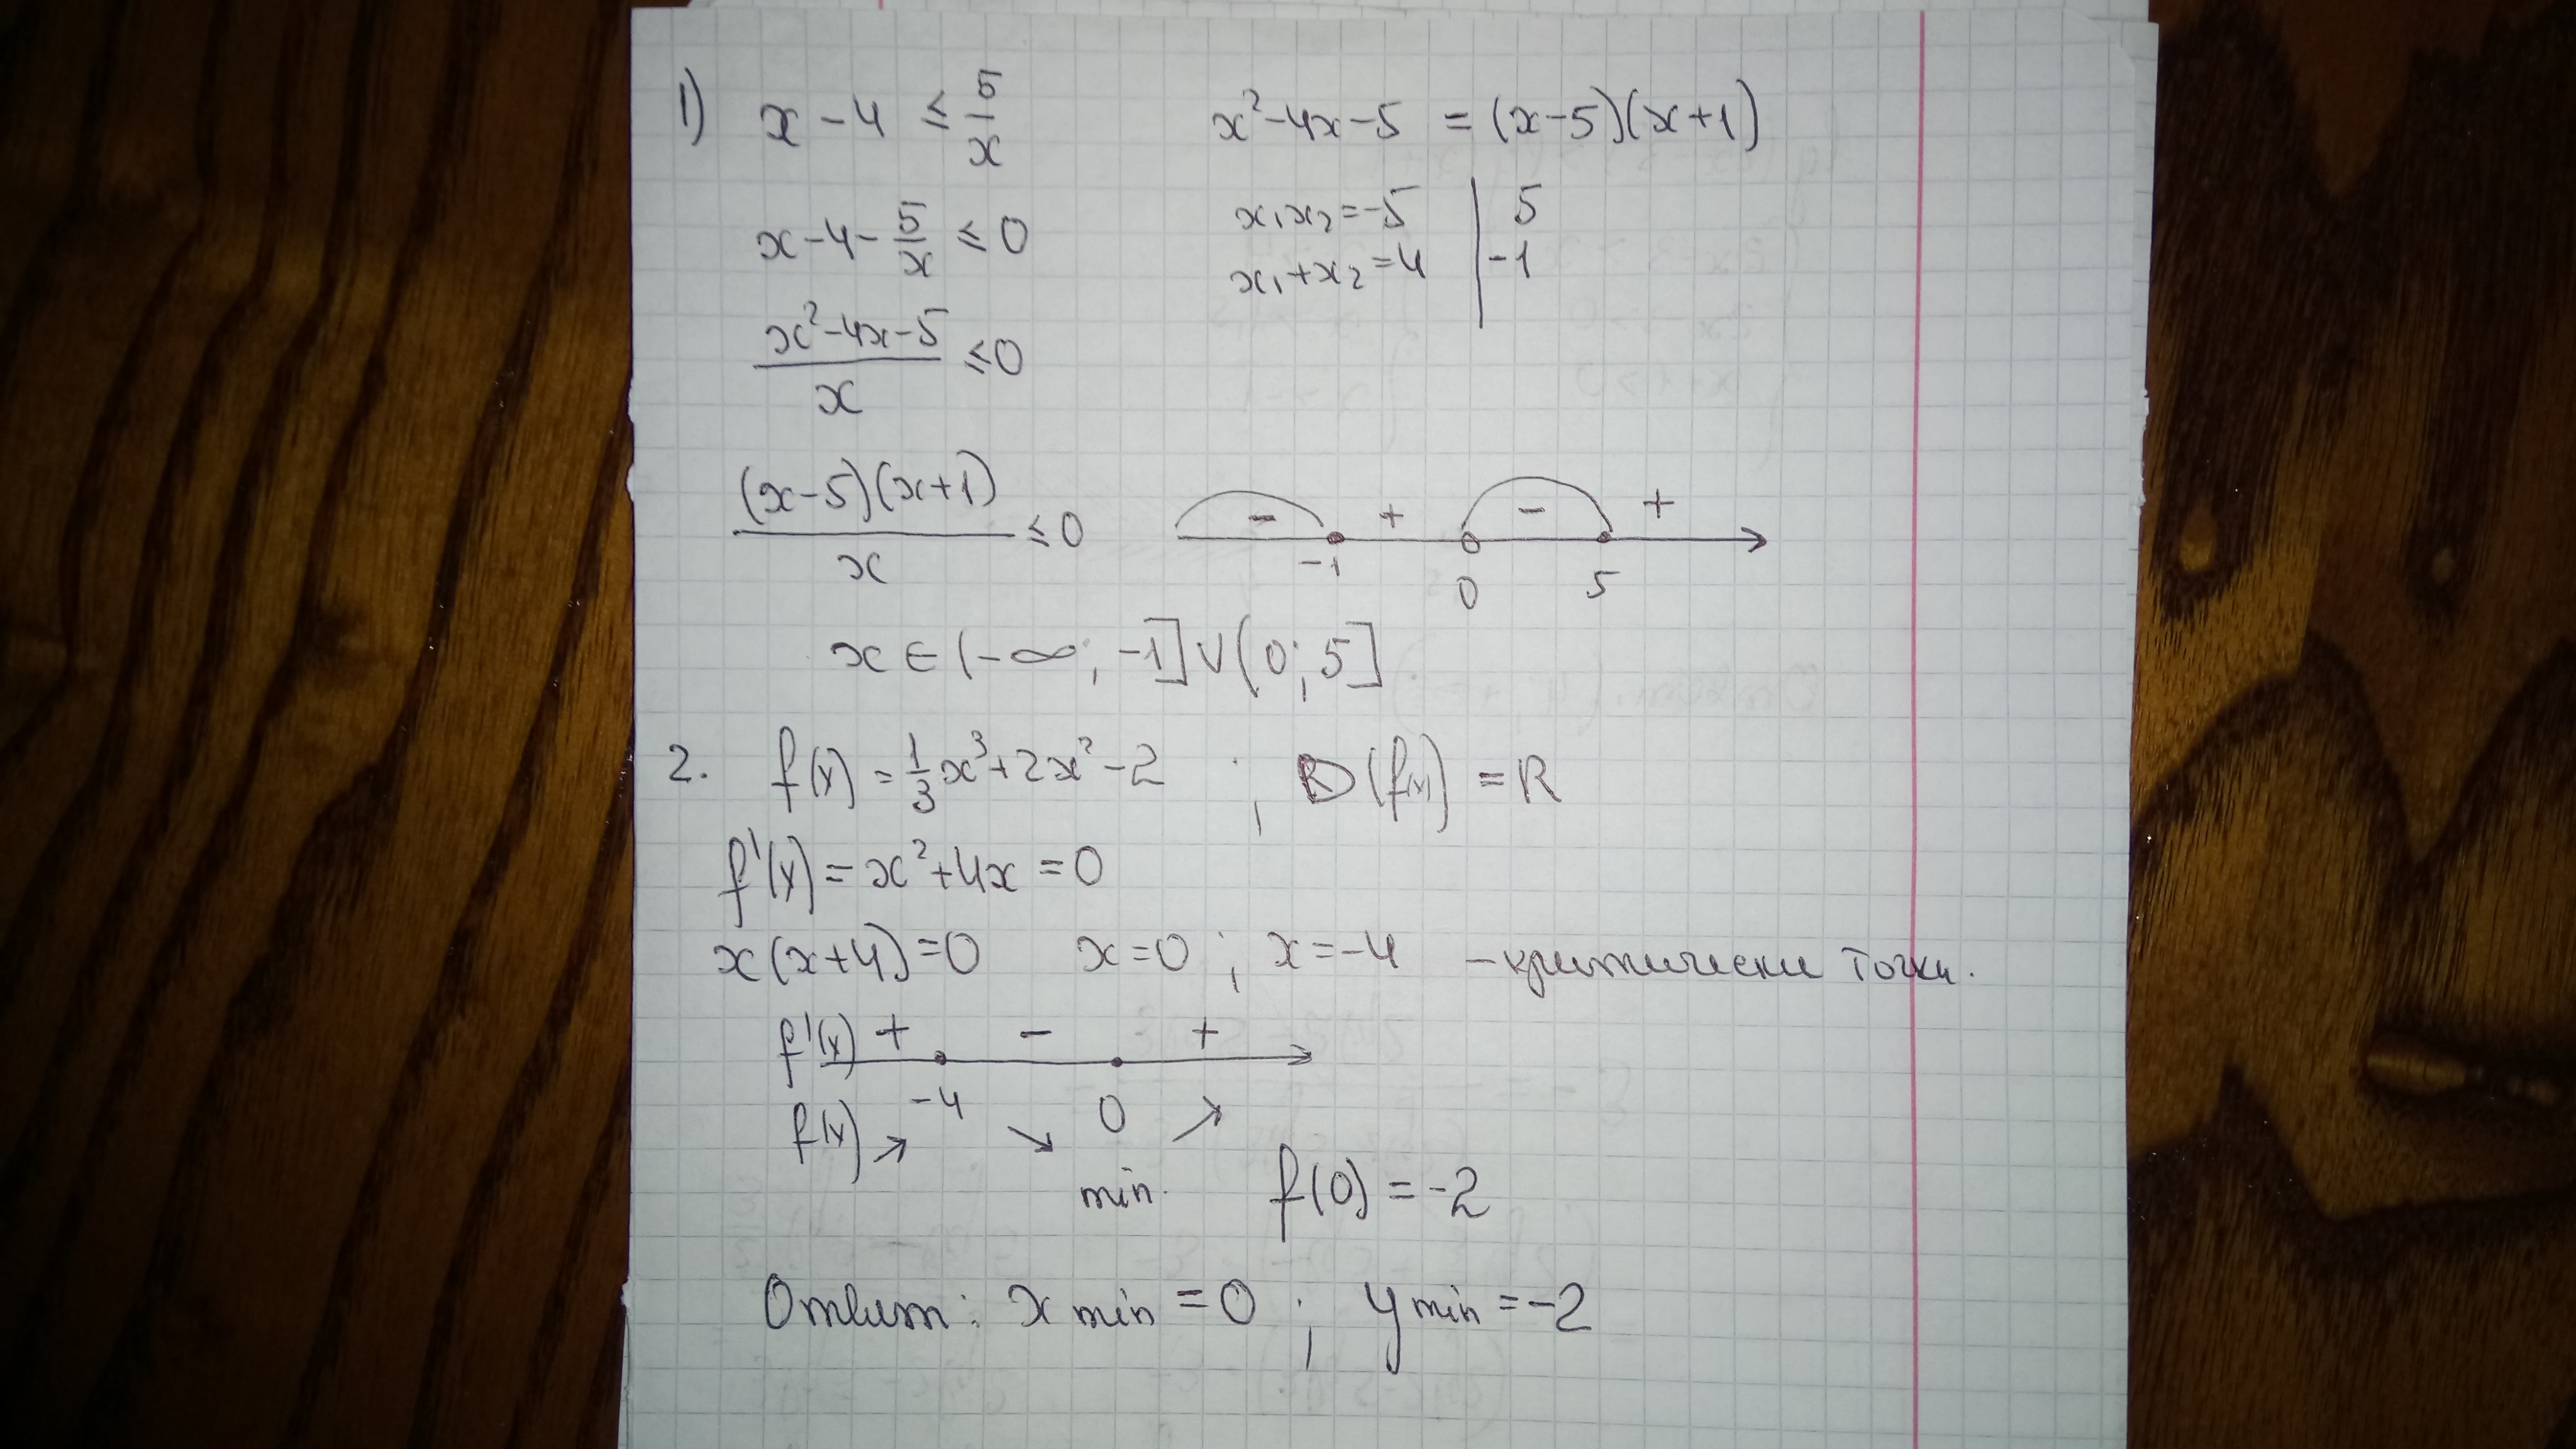 1) x - 4 ≤ 5/x
x² - 4x - 5 = (x-5)(x+1)
x - 4 - 5/x ≤ 0
x₁x₂ = -5 | 5
x₁ + x₂ = 4 | -1
(x² - 4x - 5)/x ≤ 0
(x-5)(x+1)/x ≤ 0
- + - +
-1 0 5
x ∈ (-∞; -1] ∨ (0; 5]
2. f(x) = 1/3 x³ + 2x² - 2 ; D(f(x)) = R
f'(x) = x² + 4x = 0
x(x+4) = 0 x = 0 ; x = -4 - критически точки.
f'(x) + - +
-4 0
f(x) ↗ ↘ ↗
min.
f(0) = -2
Ответ: x min = 0 ; y min = -2